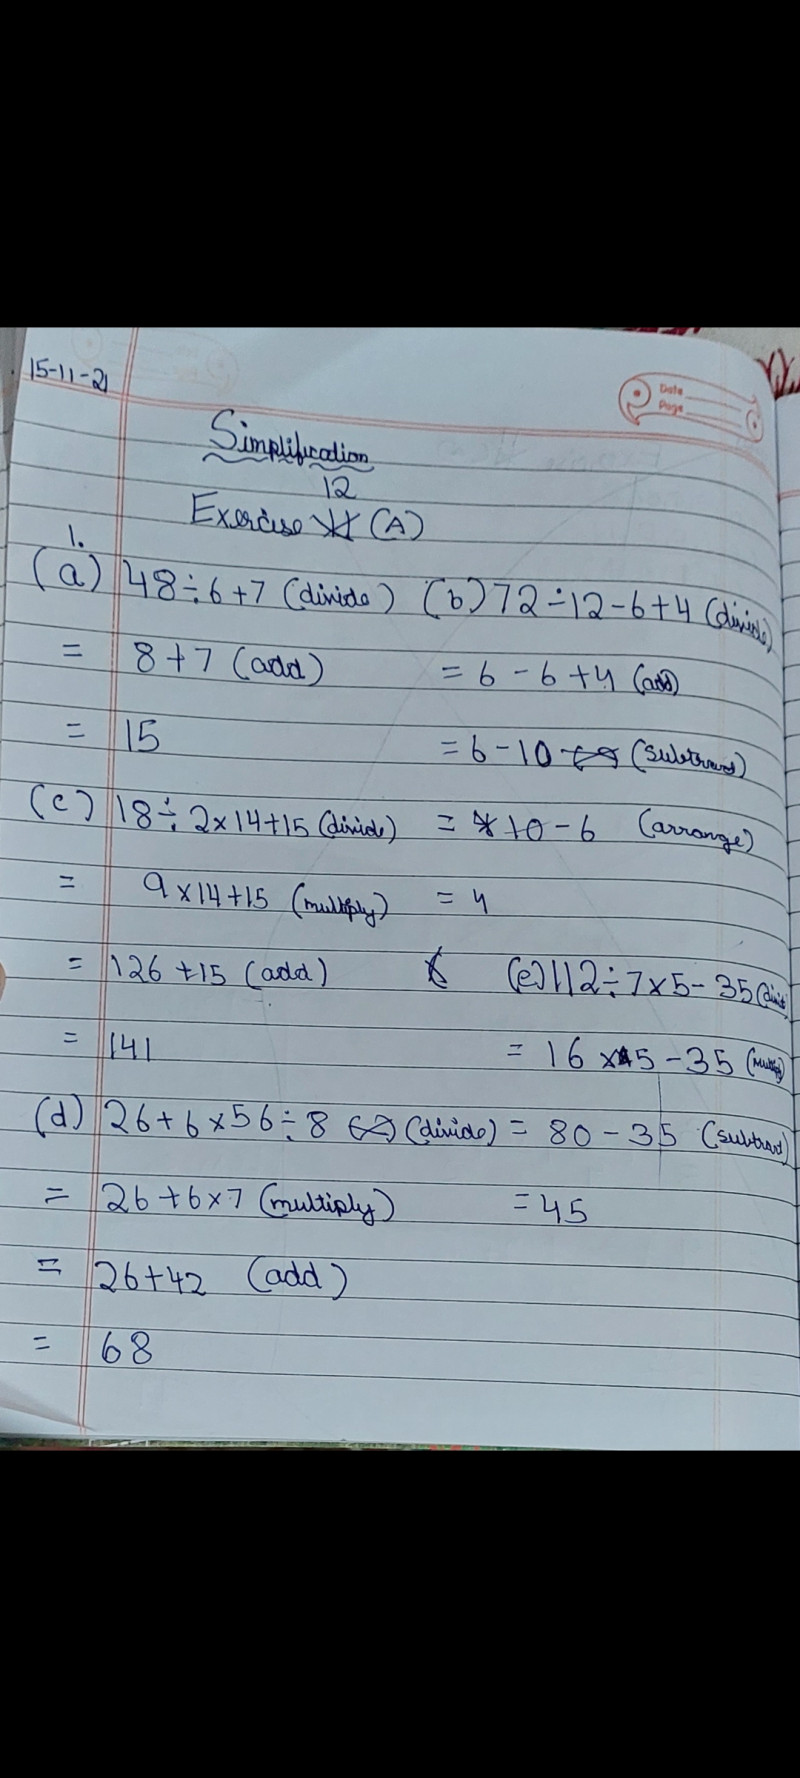 15-11-21
Date
Page
Simplification
12
Exercise (A)
1.
(a) 48÷6+7 (divide) (b) 72÷12-6+4 (divide)
= 8+7 (add) = 6-6+4 (add)
= 15 = 6-10 (subtract)
(c) 18÷2×14+15 (divide) = 10-6 (arrange)
= 9×14+15 (multiply) = 4
= 126+15 (add) (e) 112÷7×5-35 (divide)
= 141 = 16×5-35 (multiply)
(d) 26+6×56÷8 (divide) = 80-35 (subtract)
= 26+6×7 (multiply) = 45
= 26+42 (add)
= 68